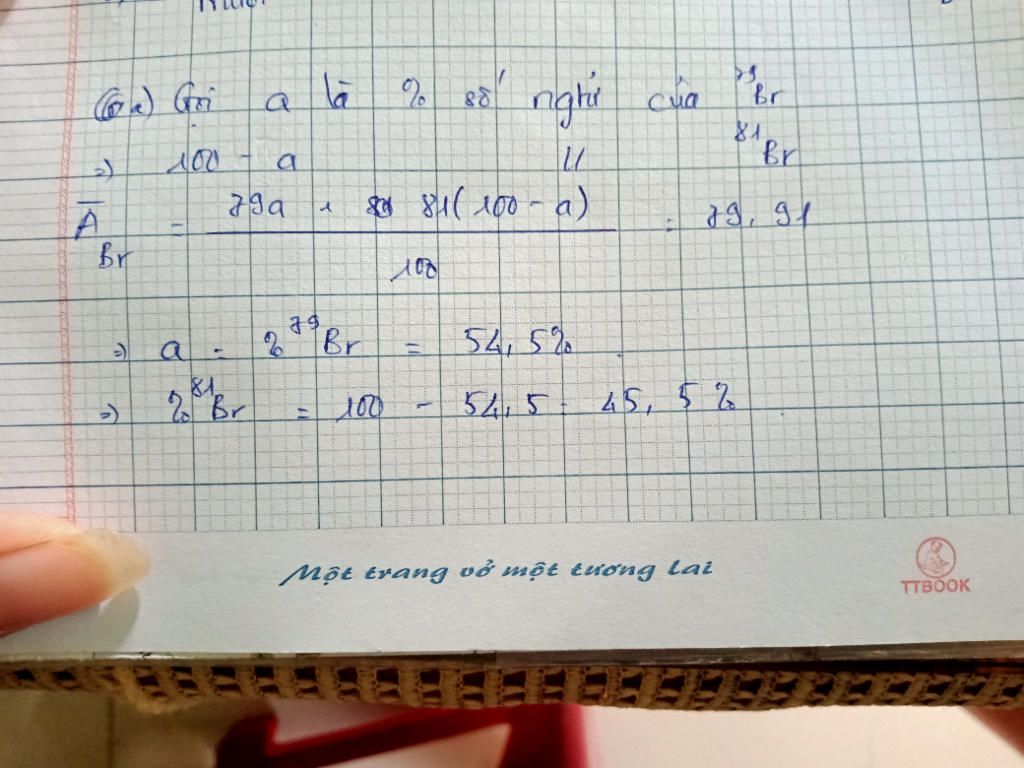 6 a) Gọi a là % số nghtử của ⁷⁹Br
=) 100 - a 〃 ⁸¹Br
A̅ Br = 79a + 81(100 - a) / 100 = 79,91
=) a = % ⁷⁹Br = 54,5%
=) % ⁸¹Br = 100 - 54,5 = 45,5%
Một trang vở một tương lai
TTBOOK